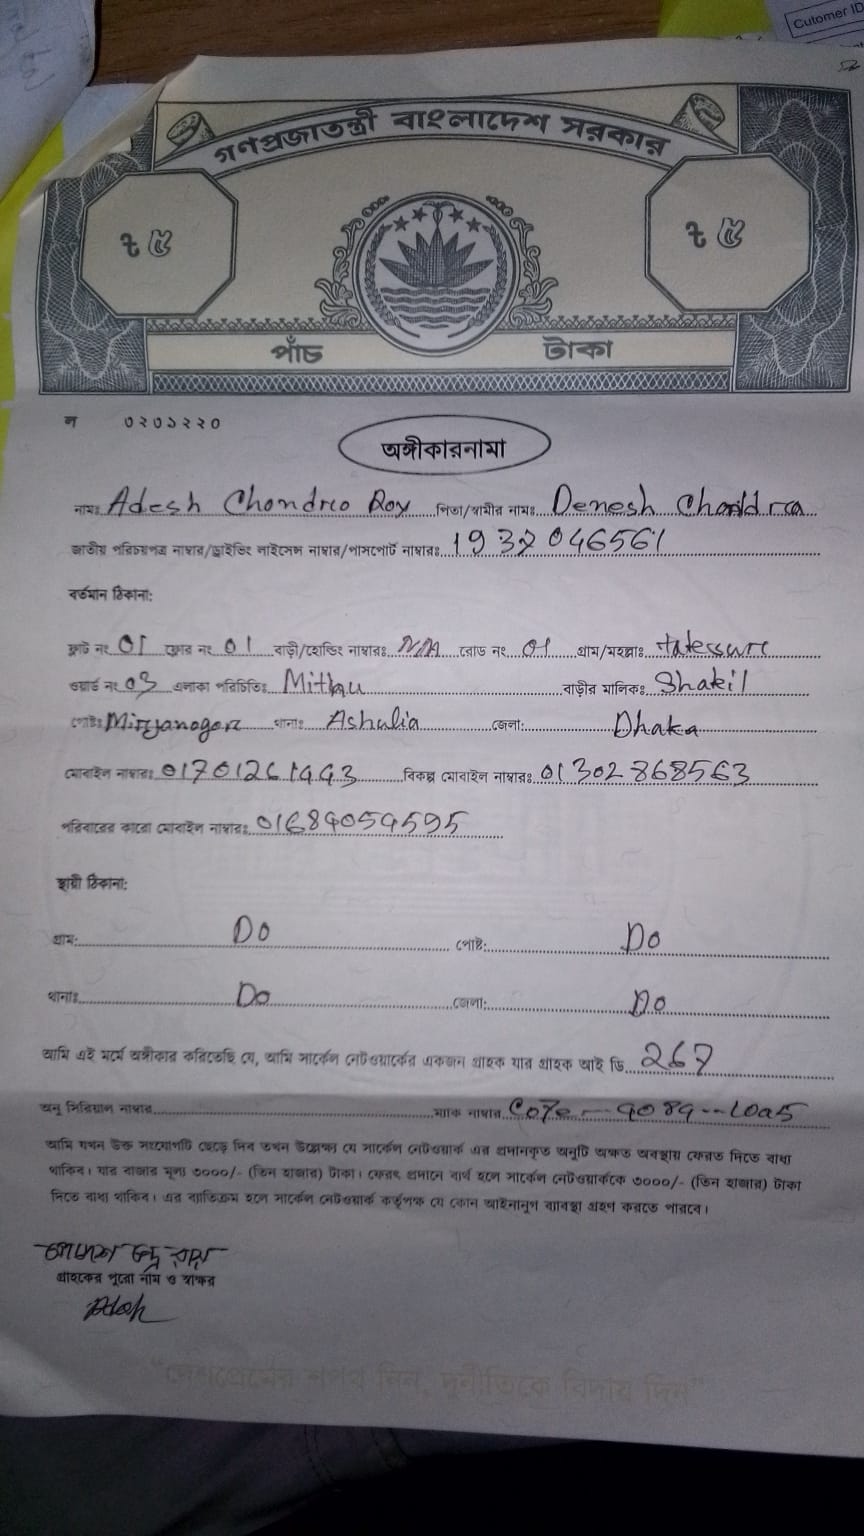 Cutomer ID
গণপ্রজাতন্ত্রী বাংলাদেশ সরকার
৳ ৫ ৳ ৫
পাঁচ টাকা
ন ০২০১২২০
অঙ্গীকারনামা
নামঃ Adesh Chondro Roy পিতা/স্বামীর নামঃ Denesh Chondra
জাতীয় পরিচয়পত্র নাম্বার/ড্রাইভিং লাইসেন্স নাম্বার/পাসপোর্ট নাম্বারঃ 1932046561
বর্তমান ঠিকানা:
ফ্লাট নং 01 ফ্লোর নং 01 বাড়ী/হোল্ডিং নাম্বারঃ N/A রোড নং 01 গ্রাম/মহল্লাঃ
ওয়ার্ড নং 03 এলাকা পরিচিতিঃ Mithu বাড়ীর মালিকঃ Shakil
পোষ্টঃ থানাঃ Ashulia জেলা: Dhaka
মোবাইল নাম্বারঃ বিকল্প মোবাইল নাম্বারঃ 01302868563
পরিবারের কারো মোবাইল নাম্বারঃ
স্থায়ী ঠিকানা:
গ্রাম: Do পোষ্ট: Do
থানাঃ Do জেলা: Do
আমি এই মর্মে অঙ্গীকার করিতেছি যে, আমি সার্কেল নেটওয়ার্কের একজন গ্রাহক যার গ্রাহক আই ডি 267
অনু সিরিয়াল নাম্বার ম্যাক নাম্বার
আমি যখন উক্ত সংযোগটি ছেড়ে দিব তখন উল্লেক্ষ্য যে সার্কেল নেটওয়ার্ক এর প্রদানকৃত অনুটি অক্ষত অবস্থায় ফেরত দিতে বাধ্য
থাকিব। যার বাজার মূল্য ৩০০০/- (তিন হাজার) টাকা। ফেরৎ প্রদানে ব্যর্থ হলে সার্কেল নেটওয়ার্ককে ৩০০০/- (তিন হাজার) টাকা
দিতে বাধ্য থাকিব। এর ব্যতিক্রম হলে সার্কেল নেটওয়ার্ক কর্তৃপক্ষ যে কোন আইনানুগ ব্যাবস্থা গ্রহণ করতে পারবে।
গ্রাহকের পুরো নাম ও স্বাক্ষর
"দেশপ্রেমের শপথ নিন, দুর্নীতিকে বিদায় দিন"